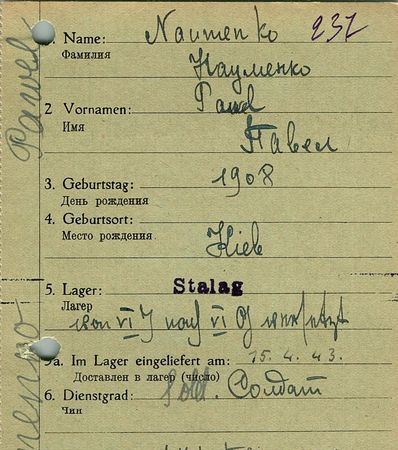 Name: Naumenko 237
Фамилия Науменко
2 Vornamen: Pawel
Имя Павел
3. Geburtstag: 1908
День рождения
4. Geburtsort:
Место рождения Kiew
5. Lager: Stalag
Лагер
von VI J nach VI G versetzt
5a. Im Lager eingeliefert am: 15.4.43.
Доставлен в лагер (число)
6. Dienstgrad: Sold. Солдат
Чин
Pawel